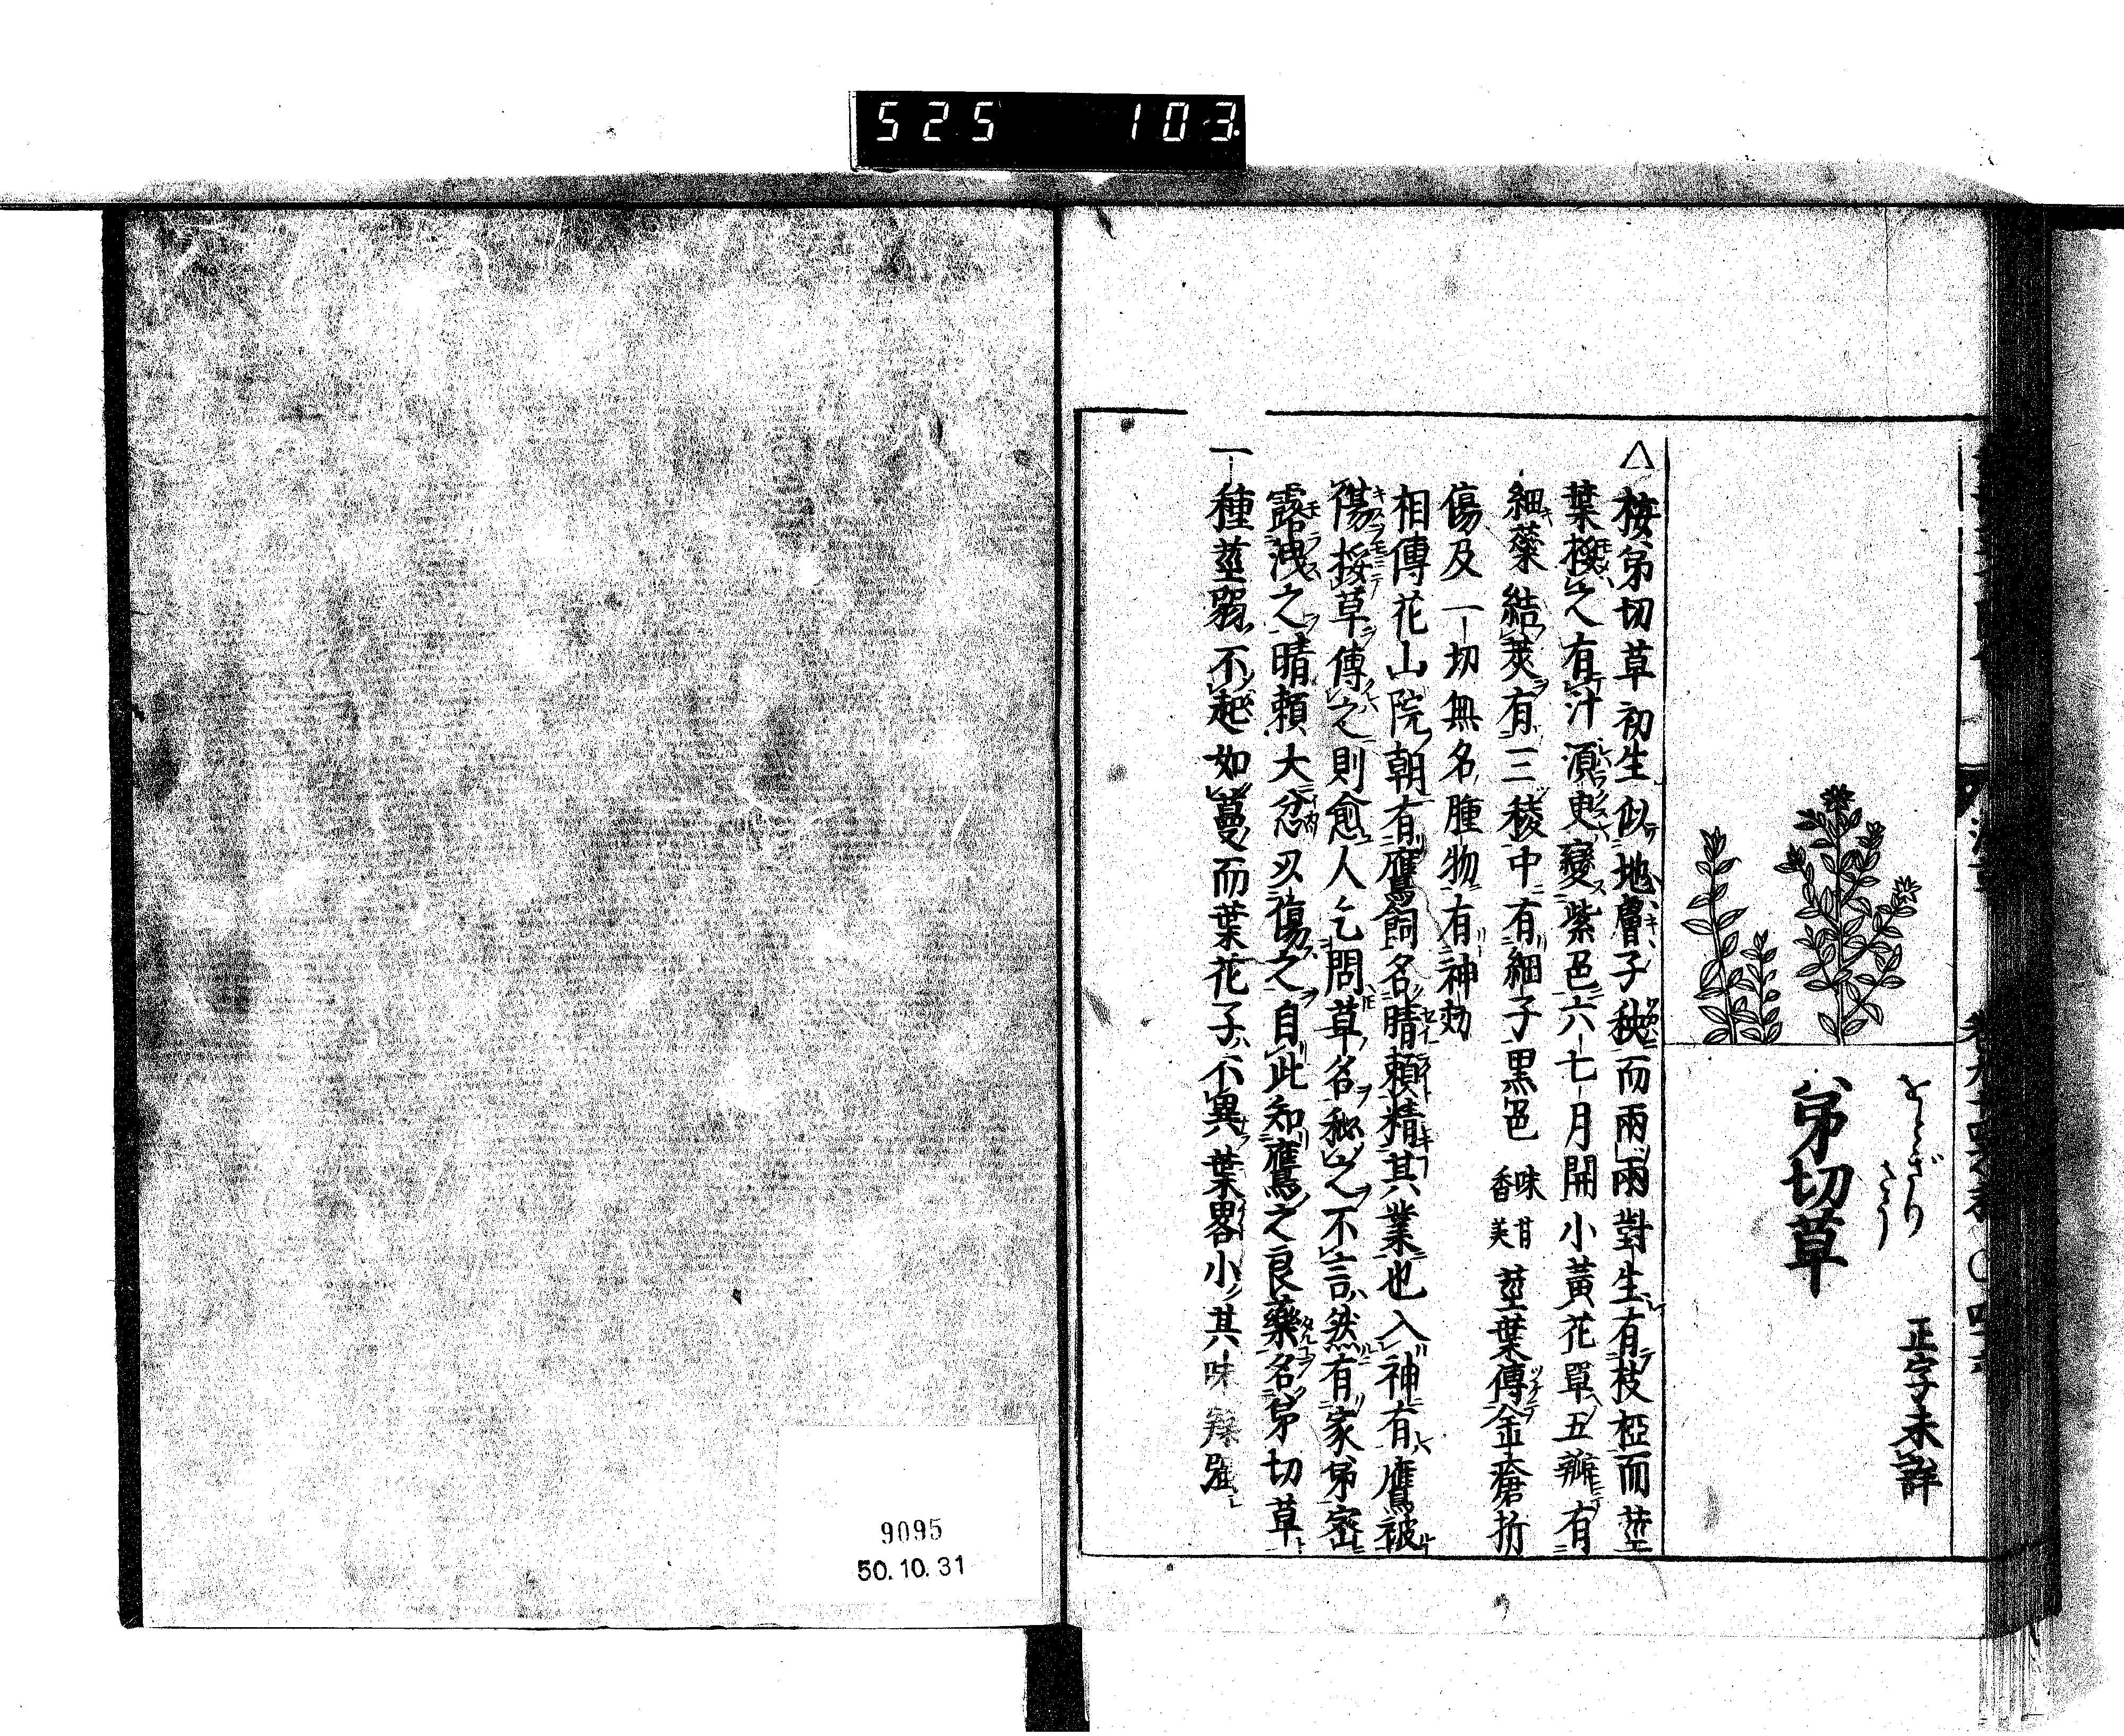 525 103
をとぎり
さう
弟切草
正字未詳
△按弟切草初生似地膚子秧而兩兩對生有枝椏而莖
葉挼之有汁須臾變紫色六七月開小黃花單五瓣有
細蘂結莢有三稜中有細子黒色味甘香美莖葉傅金瘡折
傷及一切無名腫物有神効
相傳花山院朝有鷹飼名晴頼精其業也入神有鷹被
傷挼草傅之則愈人乞問草名秘之不言然有家弟密
露洩之晴頼大忿刃傷之自此知鷹之良藥名弟切草
一種莖弱不起如蔓而葉花子不異葉畧小其味
9095
50.10.31